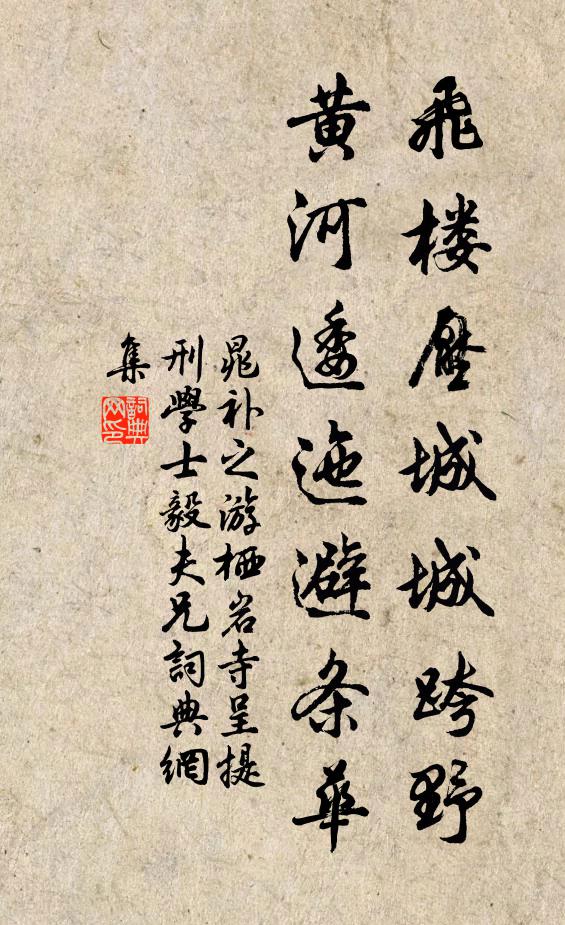 飛楼壓城城跨野
黄河逶迤避条華
晁补之游栖岩寺呈提
刑學士毅夫兄詞典網
集
詞典
网印